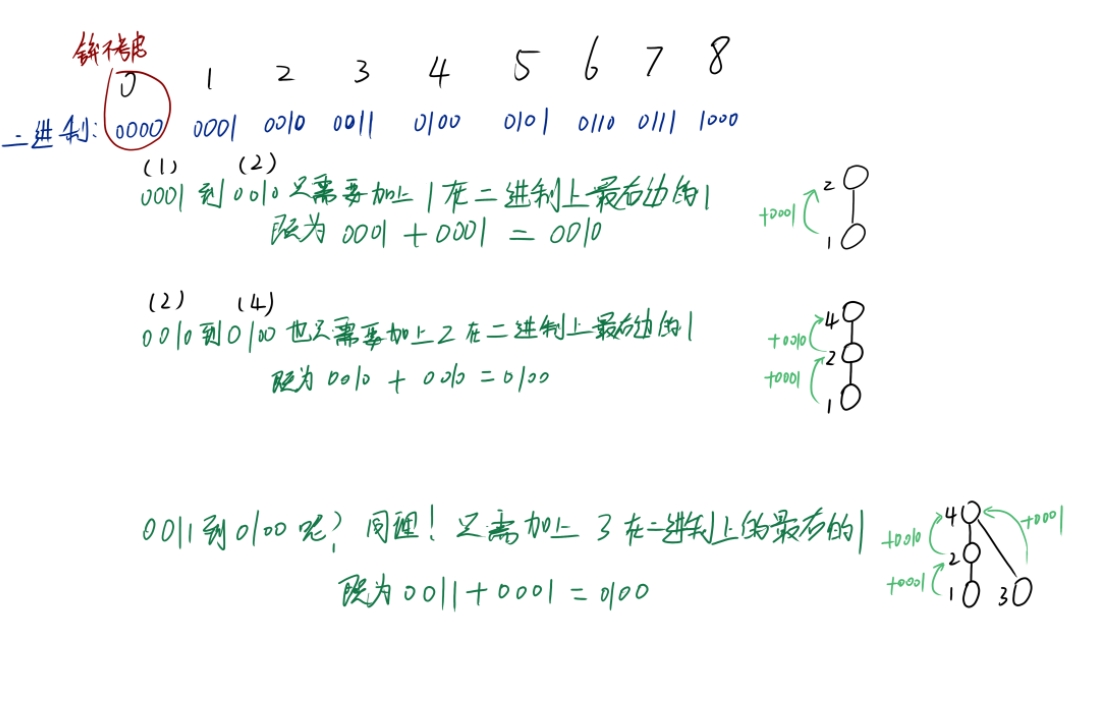 暂不考虑
0 1 2 3 4 5 6 7 8
二进制: 0000 0001 0010 0011 0100 0101 0110 0111 1000
(1) (2)
0001 到 0010 只需要加上 1 在二进制上最右边的1
既为 0001 + 0001 = 0010
+0001
2
1
(2) (4)
0010 到 0100 也只需要加上 2 在二进制上最右边的1
既为 0010 + 0010 = 0100
4
+0010
2
+0001
1
0011 到 0100 呢? 同理! 只需加上 3 在二进制上的最右的1
既为 0011 + 0001 = 0100
4
+0001
+0010
2
+0001
1 3